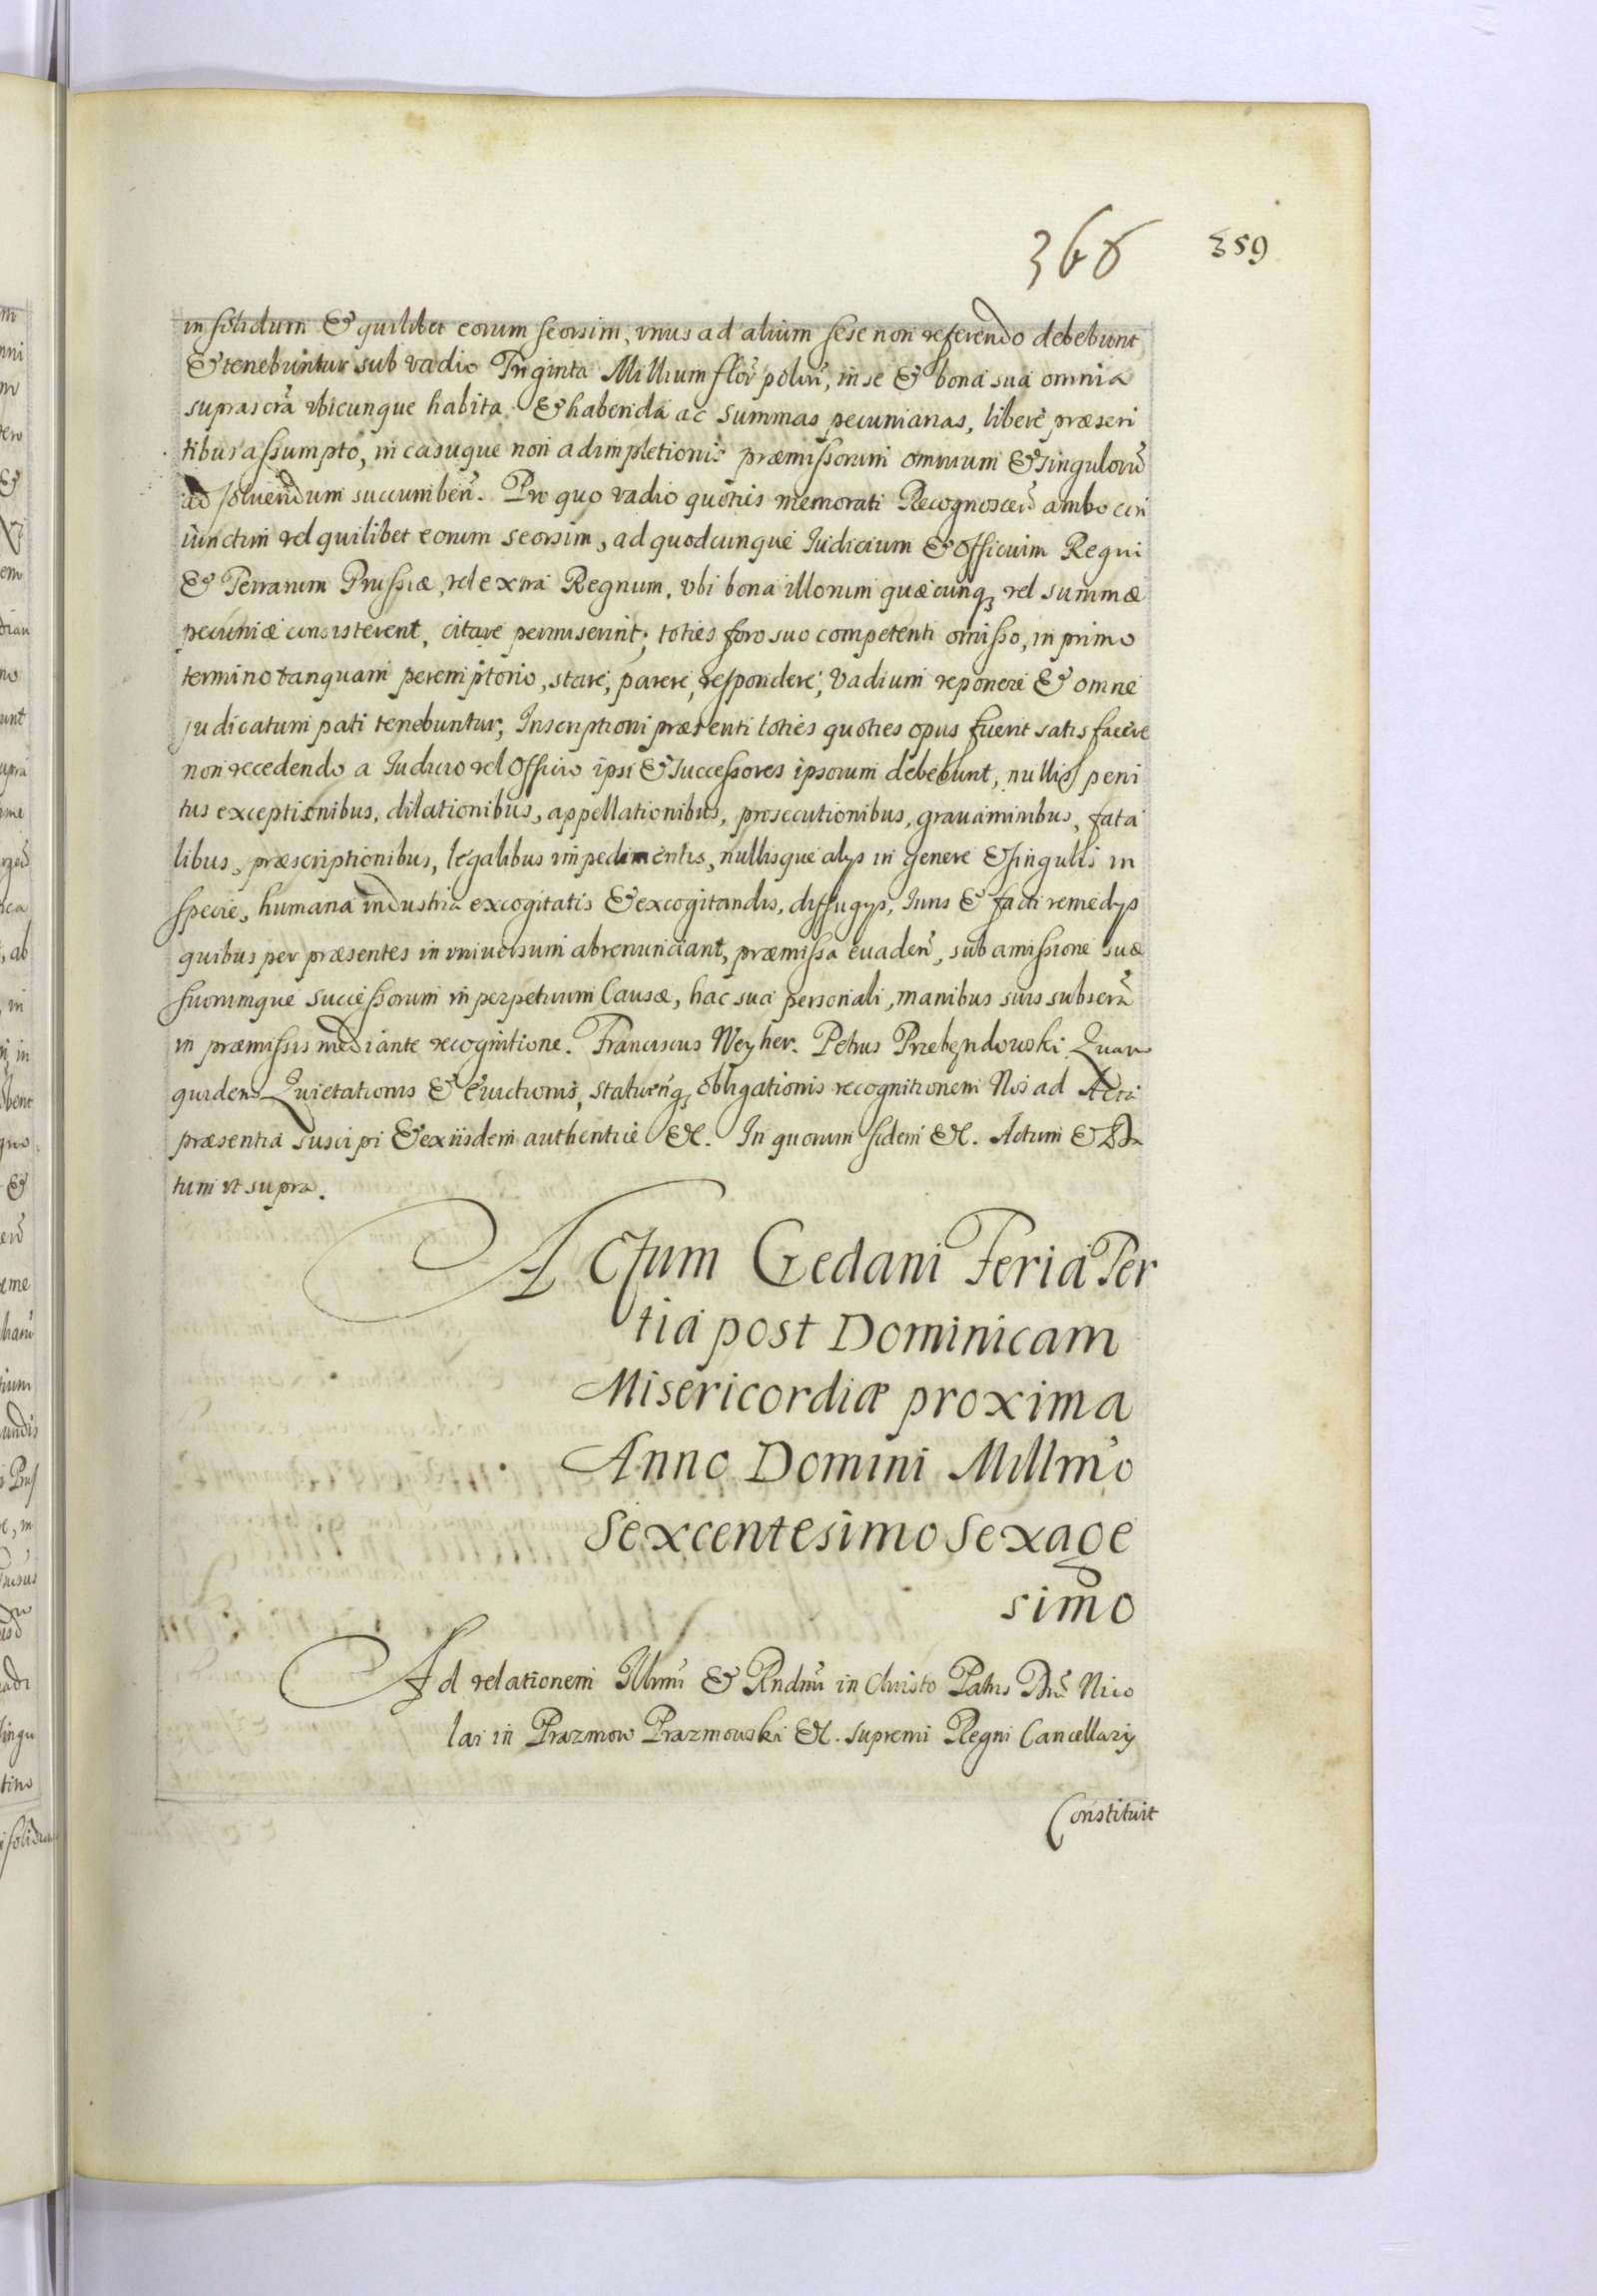 366 359
in solidum & quilibet eorum seorsim, vnus ad alium sese non referendo debebunt
& tenebuntur sub vadio Triginta Millium flor̃ polñ, in se & bona sua omnia
suprascrã vbicunque habita & habenda ac summas pecuniarias, libere præsen
tibus assumpto, in casuque non adimpletionis præmissorum omnium & singulorũ
ad soluendum succumben̄. Pro quo vadio quoties memorati Recognoscen̄ ambo con
iunctim vel quilibet eorum seorsim, ad quodcunque Iudicium & Officium Regni
& Terrarum Prussiæ, vel extra Regnum, vbi bona illorum quæcunq3 vel summæ
pecuniæ consisterent, citare permiserint; toties foro suo competenti omisso, in primo
termino tanquam peremptorio, stare, parere, respondere, vadium reponere & omne
judicatum pati tenebuntur, Inscriptioni præsenti toties quoties opus fuerit satisfacere
non recedendo a Iudicio vel Officio ipsi & successores ipsorum debebunt, nullis peni
tus exceptionibus, dilationibus, appellationibus, prosecutionibus, grauaminibus, fata
libus, præscriptionibus, legalibus impedimentis, nullisque alys in genere & singulis in
specie, humana industria excogitatis & excogitandis, diffugys, Iuris & facti remedys
quibus per præsentes in vniuersum abrenunciant, præmissa euaden̄, sub amissione suæ
suorumque successorum in perpetuum Causæ, hac sua personali, manibus suis subscrã
in præmissis mediante recognitione. Franciscus Weyher. Petrus Przebendowski Quam
quidem Quietationis & euictionis, staturenq3 obligationis recognitionem Nos ad Acta
præsentia suscipi & ex iisdem authentice &c. In quorum fidem &c. Actum & Da
tum vt supra.
Actum Gedani Feria Ter
tia post Dominicam
Misericordiæ proxima
Anno Domini Millmo
Sexcentesimo Sexage
simo
Ad relationem Illmi & Rndmi in Christo Patris Dni Nico
lai in Prazmow Prazmowski &c. supremi Regni Cancellarij
Constituit